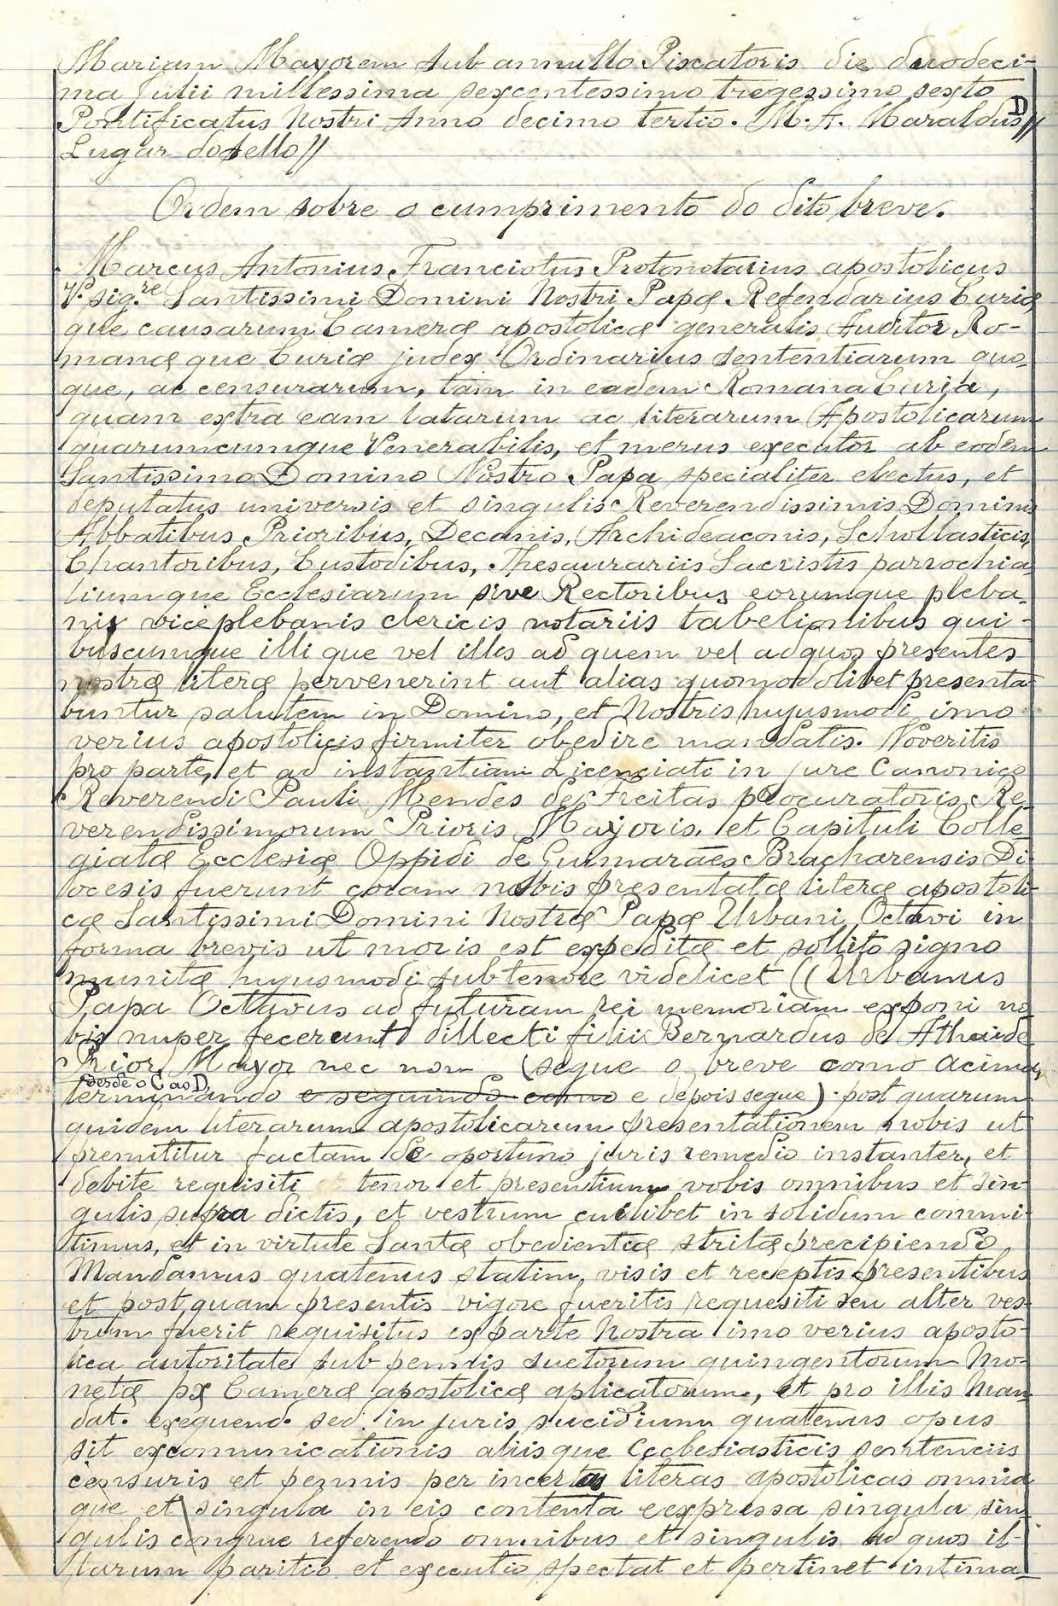 Mariam Mayorem sub annullo Piscatoris die duodeci-
ma Julii millessima sexcentessimo tregessimo sexto
Pontificatus Nostri Anno decimo tertio. M. A. Maraldus D//
Lugar do sello//
Ordem sobre o cumprimento do dito breve.
Marcus Antonius Franciotus Protonotarius apostolicus
V. sig.re Santissimi Domini Nostri Papæ Refendarius Curiæ
que causarum Cameræ apostolicæ generalis Auditor Ro-
manæ que Curiæ judex Ordinarius sententiarum quo-
que, ac censurarum, tam in eadem Romana Curia,
quam extra eam latarum ac literarum Apostolicarum
quarumcumque Venerabilis, et merus executor ab eodem
Santissimo Domino Nostro Papa specialiter electus, et
deputatus universis et singulis Reverendissimis Dominis
Abbatibus Prioribus, Decanis, Archideaconis, Schollasticis,
Chantoribus, Custodibus, Thesaurariis Sacristis parrochia-
liumque Ecclesiarum sive Rectoribus eorumque pleba-
nis viceplebanis clericis notariis tabelionibus qui-
buscumque illi que vel illis ad quem vel ad quos presentes
nostræ literæ pervenerint aut alias quomodolibet presenta-
buntur salutem in Domino, et Nostris hujusmodi imo
verius apostolicis firmiter obedire mandatis. Noveritis
pro parte, et ad instantiam Licenciati in jure Canonico
Reverendi Pauli Mendes de Freitas procuratoris Re-
verendissimorum Prioris Mayoris, et Capituli Colle-
giatæ Ecclesiæ Oppidi de Guimarães Bracharensis Di-
ocesis fuerunt coram nobis presentatæ literæ apostoli-
cæ Santissimi Domini Nostræ Papæ Urbani Octavi in
forma brevis ut moris est expeditæ et sollito signo
munitæ hujusmodi sub tenore videlicet (( Urbanus
Papa Octavus ad futuram rei memoriam exponi no-
bis nuper fecerunt dillecti filii Bernardus de Athaide
Prior Mayor nec non (segue o breve como acima,
desde o C ao D,
terminando e seguindo como e depois segue) post quarum
quidem literarum apostolicarum presentationem nobis ut
premititur factam de oportuno juris remedio instanter, et
debite requisiti tenor et presentium vobis omnibus et sin-
gulis supra dictis, et vestrum cuilibet in solidum commi-
timus, et in virtute Santæ obedientiæ stritæ precipiendo
Mandamus quatenus statim, visis et receptis presentibus
et postquam presentis vigore fueritis requesiti seu alter ves-
trum fuerit requisitus ex parte Nostra imo verius aposto-
lica autoritate sub pennis ductorum quingentorum Mo-
netæ px Cameræ apostolicæ aplicatorum, et pro illis Man-
dat. exequend. sed in juris sucidium quatenus opus
sit excomunicationis aliisque Ecclesiasticis sentenciis
censuris et pennis per incertas literas apostolicas omnia
que et singula in eis contenta eexpressa singula sin-
gulis congrue referendo omnibus et singulis ad quos il-
larum paritio et executio spectat et pertinet intima-